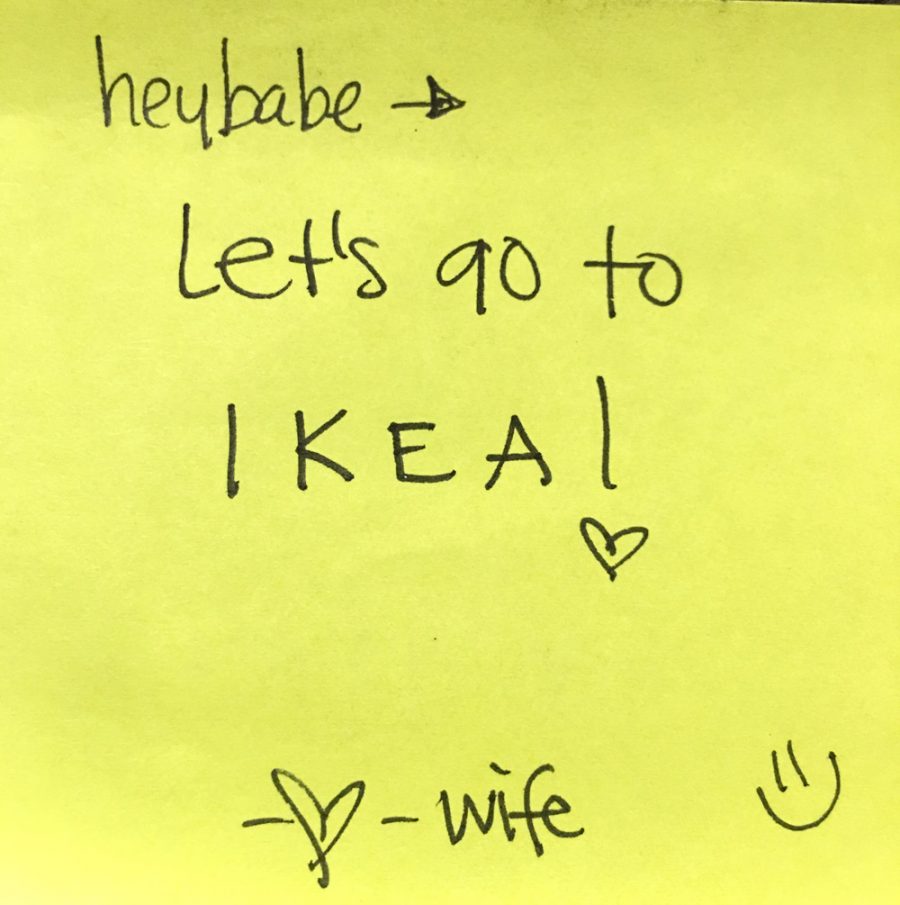 heybabe →
Let's go to
IKEA!
-♡- wife